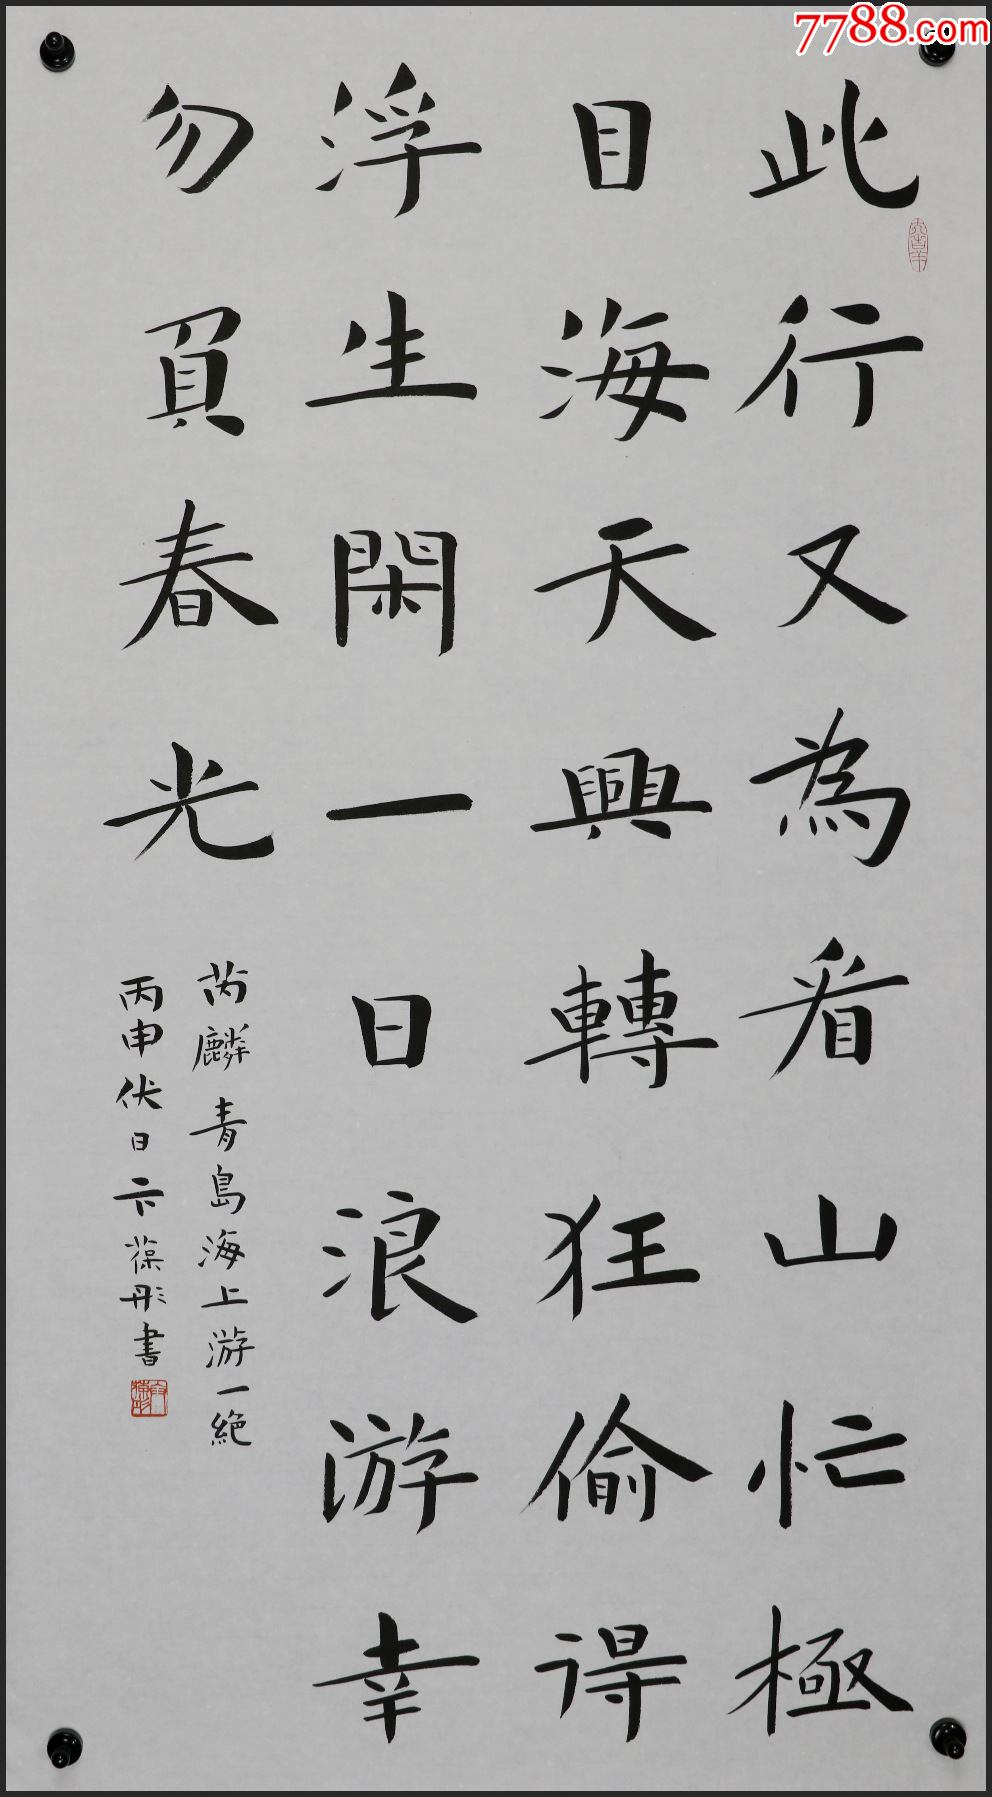 此行又為看山忙極
目海天興轉狂偷得
浮生閑一日浪游幸
勿負春光
芮麟青島海上游一絕
丙申伏日卞葆彤書
7788.com